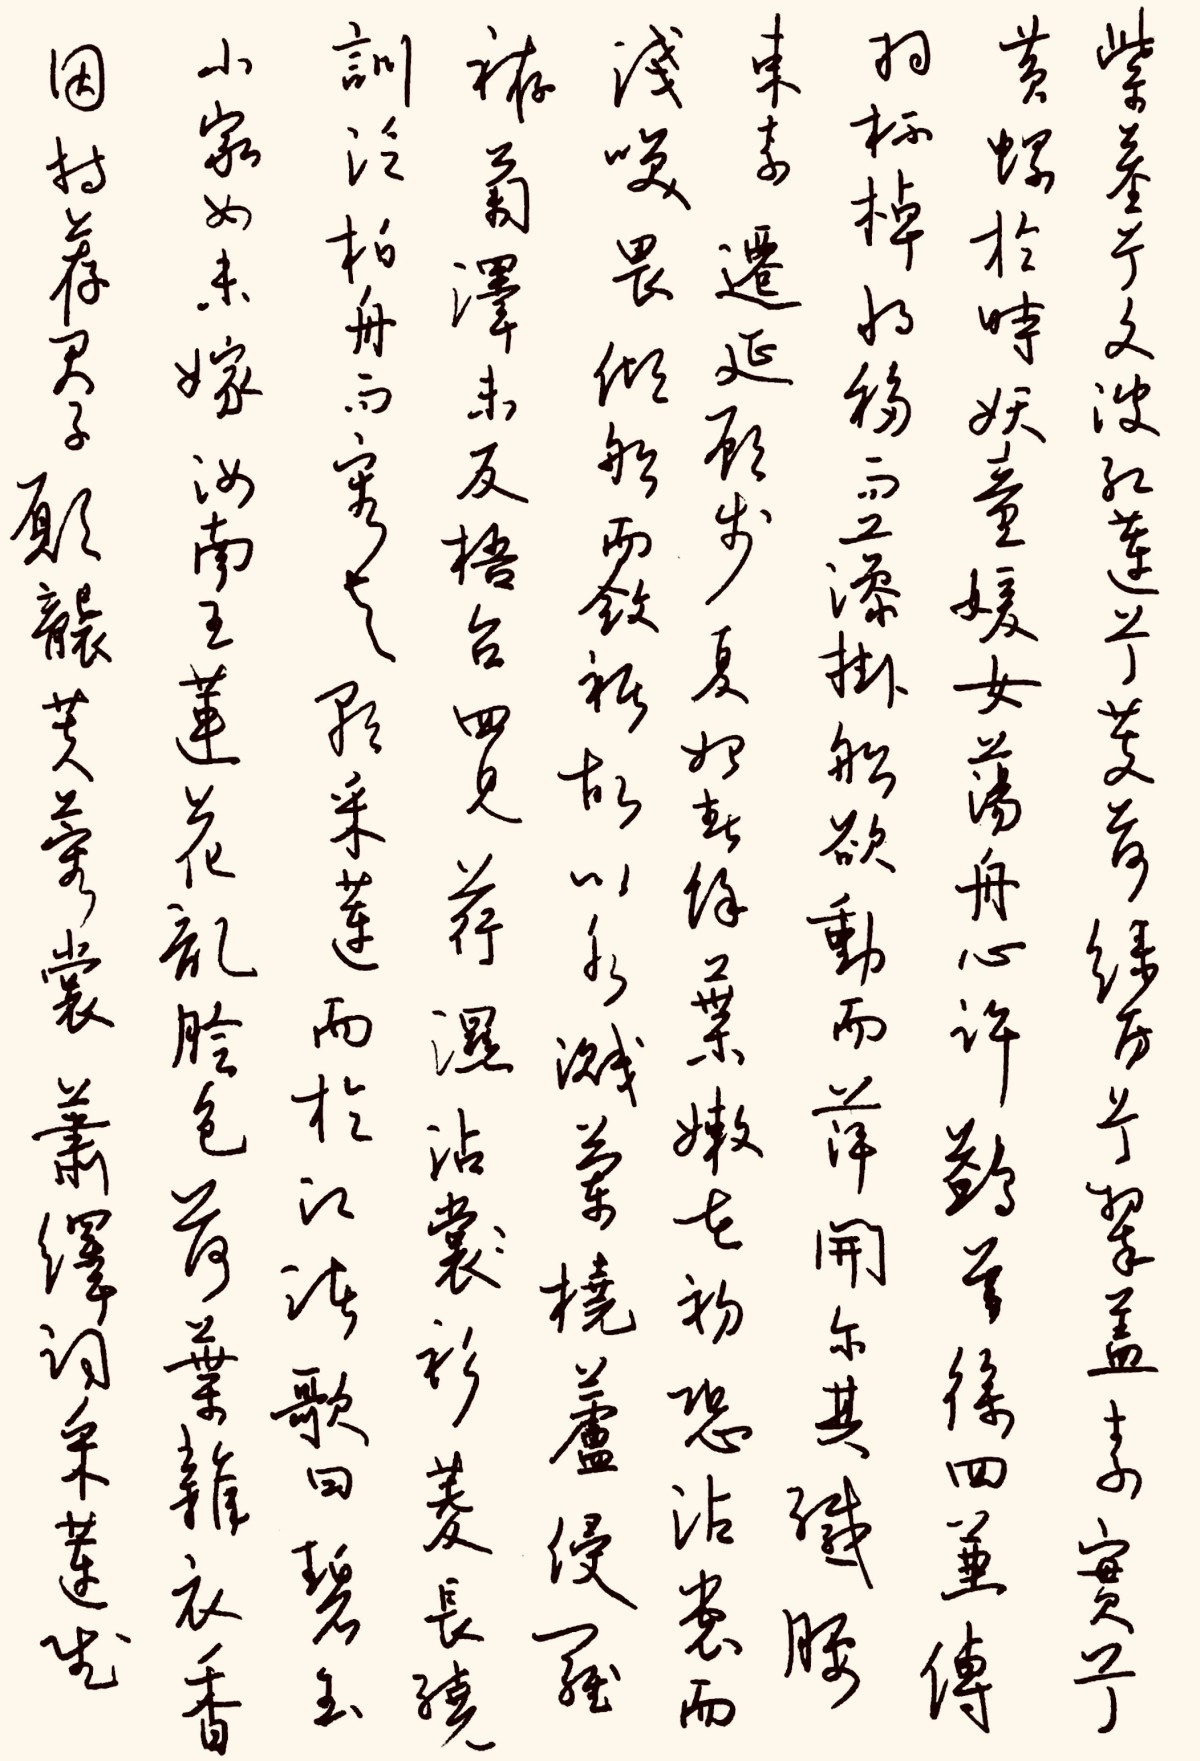 紫莖兮文波紅蓮兮芰荷綠房兮翠蓋素實兮
黃螺於時妖童媛女蕩舟心許鷁首徐回兼傳
羽杯棹將移而藻掛船欲動而萍開尔其纖腰
束素遷延顧步夏始春餘葉嫩花初恐沾裳而
淺笑畏傾船而斂裾故以水濺蘭橈蘆侵羅
袸菊澤未反梧台回見荇濕沾裳衫菱長繞
訓泛柏舟而容与歌采蓮而於江渚歌曰碧玉
小家女来嫁汝南王蓮花亂臉色荷葉雜衣香
因持荐君子願襲芙蓉裳 蕭繹詞采蓮賦